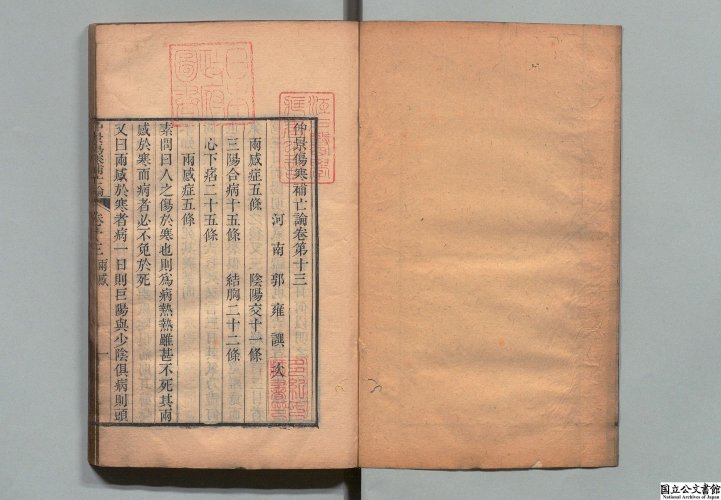 仲景傷寒補亡論卷第十三
河南郭雍譔次
兩感症五條 陰陽交十一條
三陽合病十五條 結胸二十二條
心下痞二十五條
兩感症五條
素問曰人之傷於寒也則爲病熱熱雖甚不死其兩
感於寒而病者必不免於死
又曰兩感於寒者病一日則巨陽與少陰俱病則頭
卷十三 兩感 一
国立公文書館
National Archives of Japan